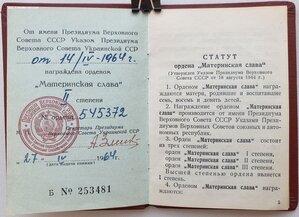 От имени Президиума Верховного
Совета СССР Указом Президиума
Верховного Совета Украинской ССР
от 14/IV-1964 г.
награждена орденом
„Материнская слава"
II
степени
№ ордена 545372
Секретарь Президиума
Верховного Совета
27 IV 1964 г.
(дата выдачи книжки)
Б № 253481
СТАТУТ
ордена „Материнская слава"
(Утвержден Указом Президиума Верховного
Совета СССР от 18 августа 1944 г.)
1. Орденом „Материнская слава" на-
граждаются матери, родившие и воспитавшие
семь, восемь и девять детей.
2. Награждение орденом „Материнская
слава" производится от имени Президиума
Верховного Совета СССР Указами Президиу-
мов Верховных Советов союзных и автоном-
ных республик.
3. Орден „Материнская слава" состоит
из трех степеней:
орден „Материнская слава" I степени,
орден „Материнская слава" II степени,
орден „Материнская слава" III степени.
Высшей степенью ордена является
I степень.
4. Орденом „Материнская слава" наг-
раждаются: